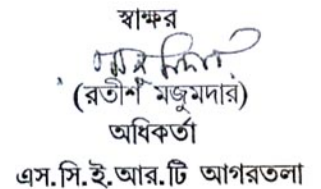 স্বাক্ষর
(রতীশ মজুমদার)
অধিকর্তা
এস.সি.ই.আর.টি আগরতলা